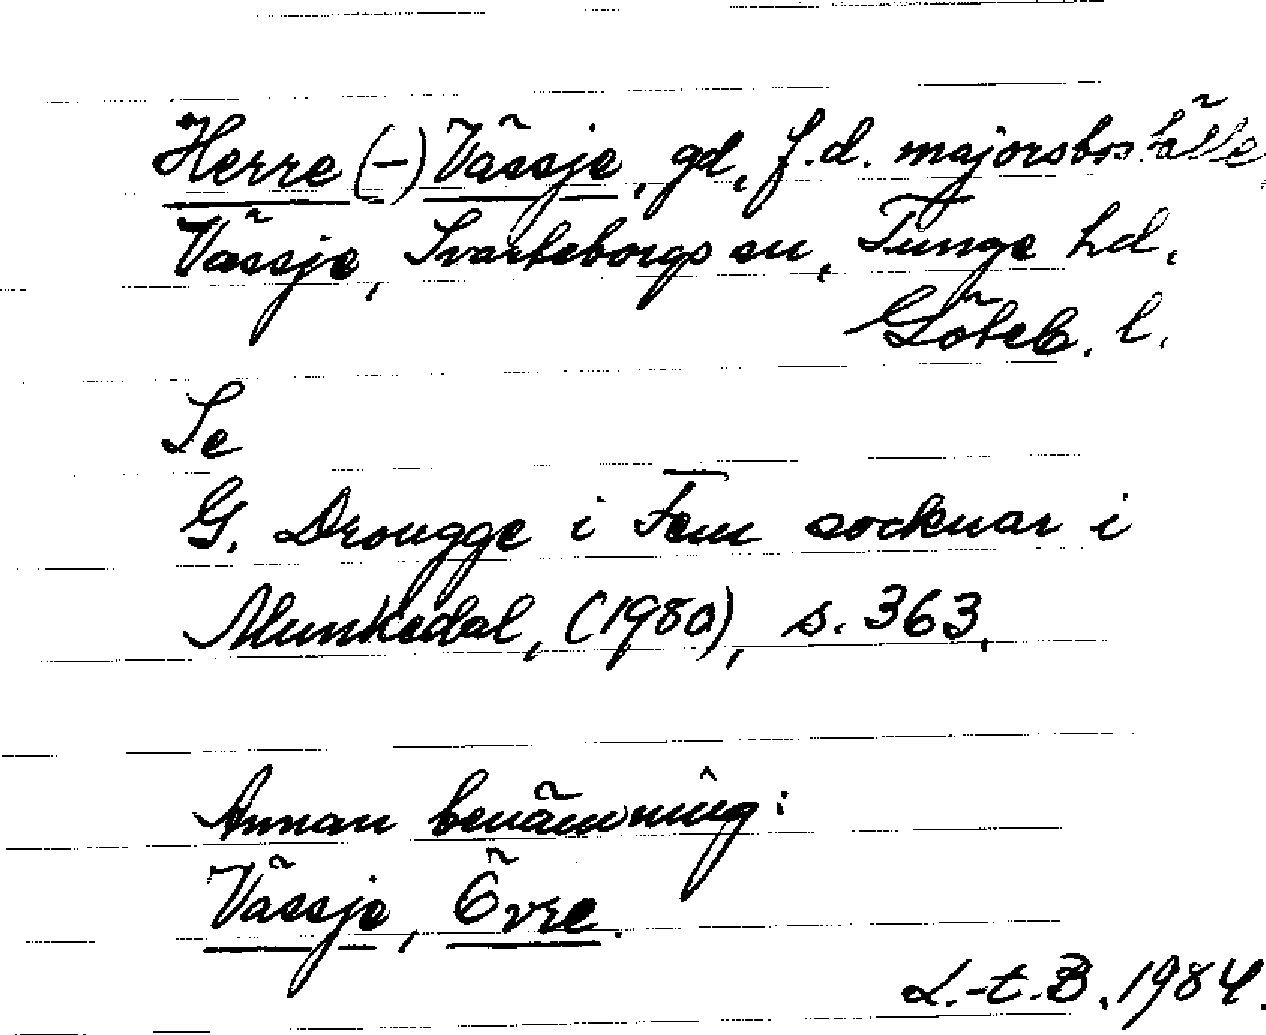 Herre(-)Vässje, gd, f.d. majorsboställe,
Vässje, Svarteborgs sn, Tunge hd,
Göteb. l.
Se
G. Drougge i Fem socknar i
Munkedal, (1980), s. 363.
Annan benämning:
Vässje, Övre.
L.-t.B. 1984.